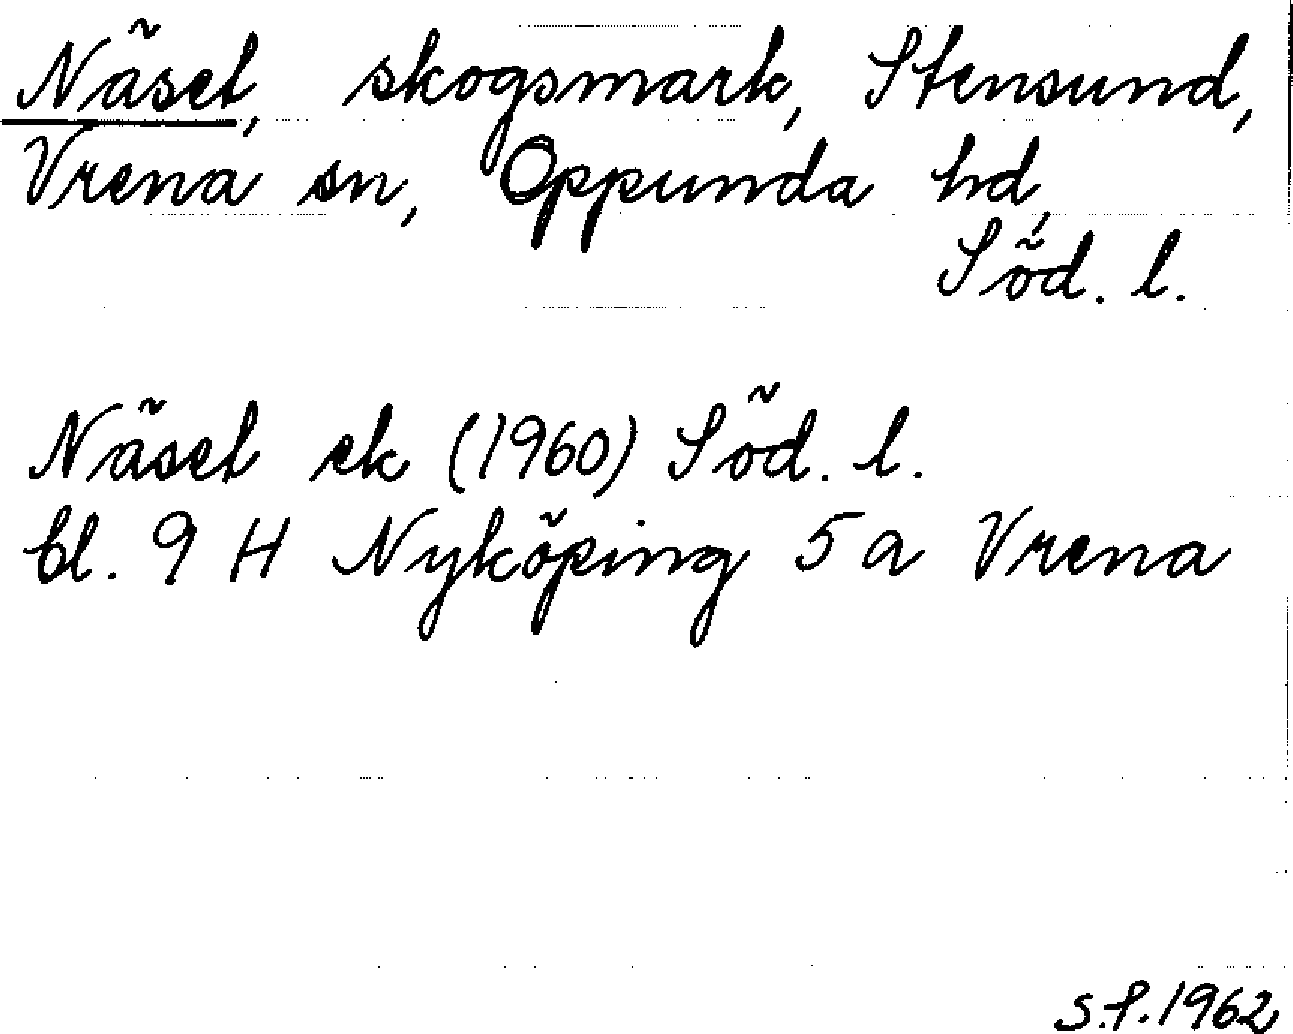 Näset, skogsmark, Stensund,
Vrena sn, Oppunda hd,
Söd. l.
Näset ek (1960) Söd. l.
bl. 9 H Nyköping 5 a Vrena
s.f. 1962